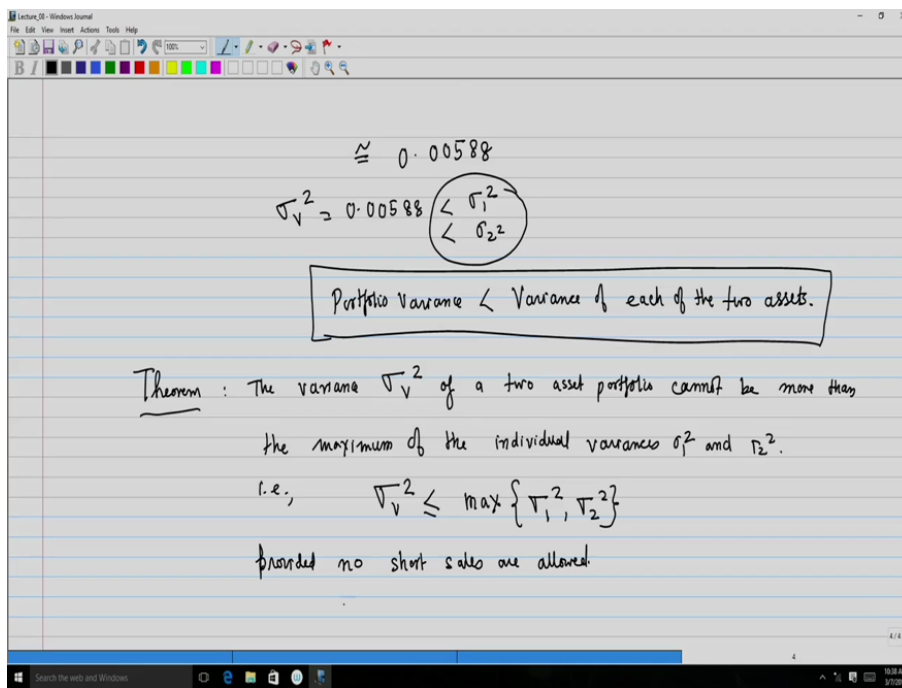 Lecture_08 - Windows Journal
File Edit View Insert Actions Tools Help
100%
B I
≅ 0.00588
σ_V² = 0.00588 < σ₁²
< σ₂²
Portfolio Variance < Variance of each of the two assets.
Theorem : The variance σ_V² of a two asset portfolio cannot be more than
the maximum of the individual variances σ₁² and σ₂².
i.e., σ_V² ≤ max {σ₁², σ₂²}
provided no short sales are allowed.
4/4
4
Search the web and Windows
10:38 A